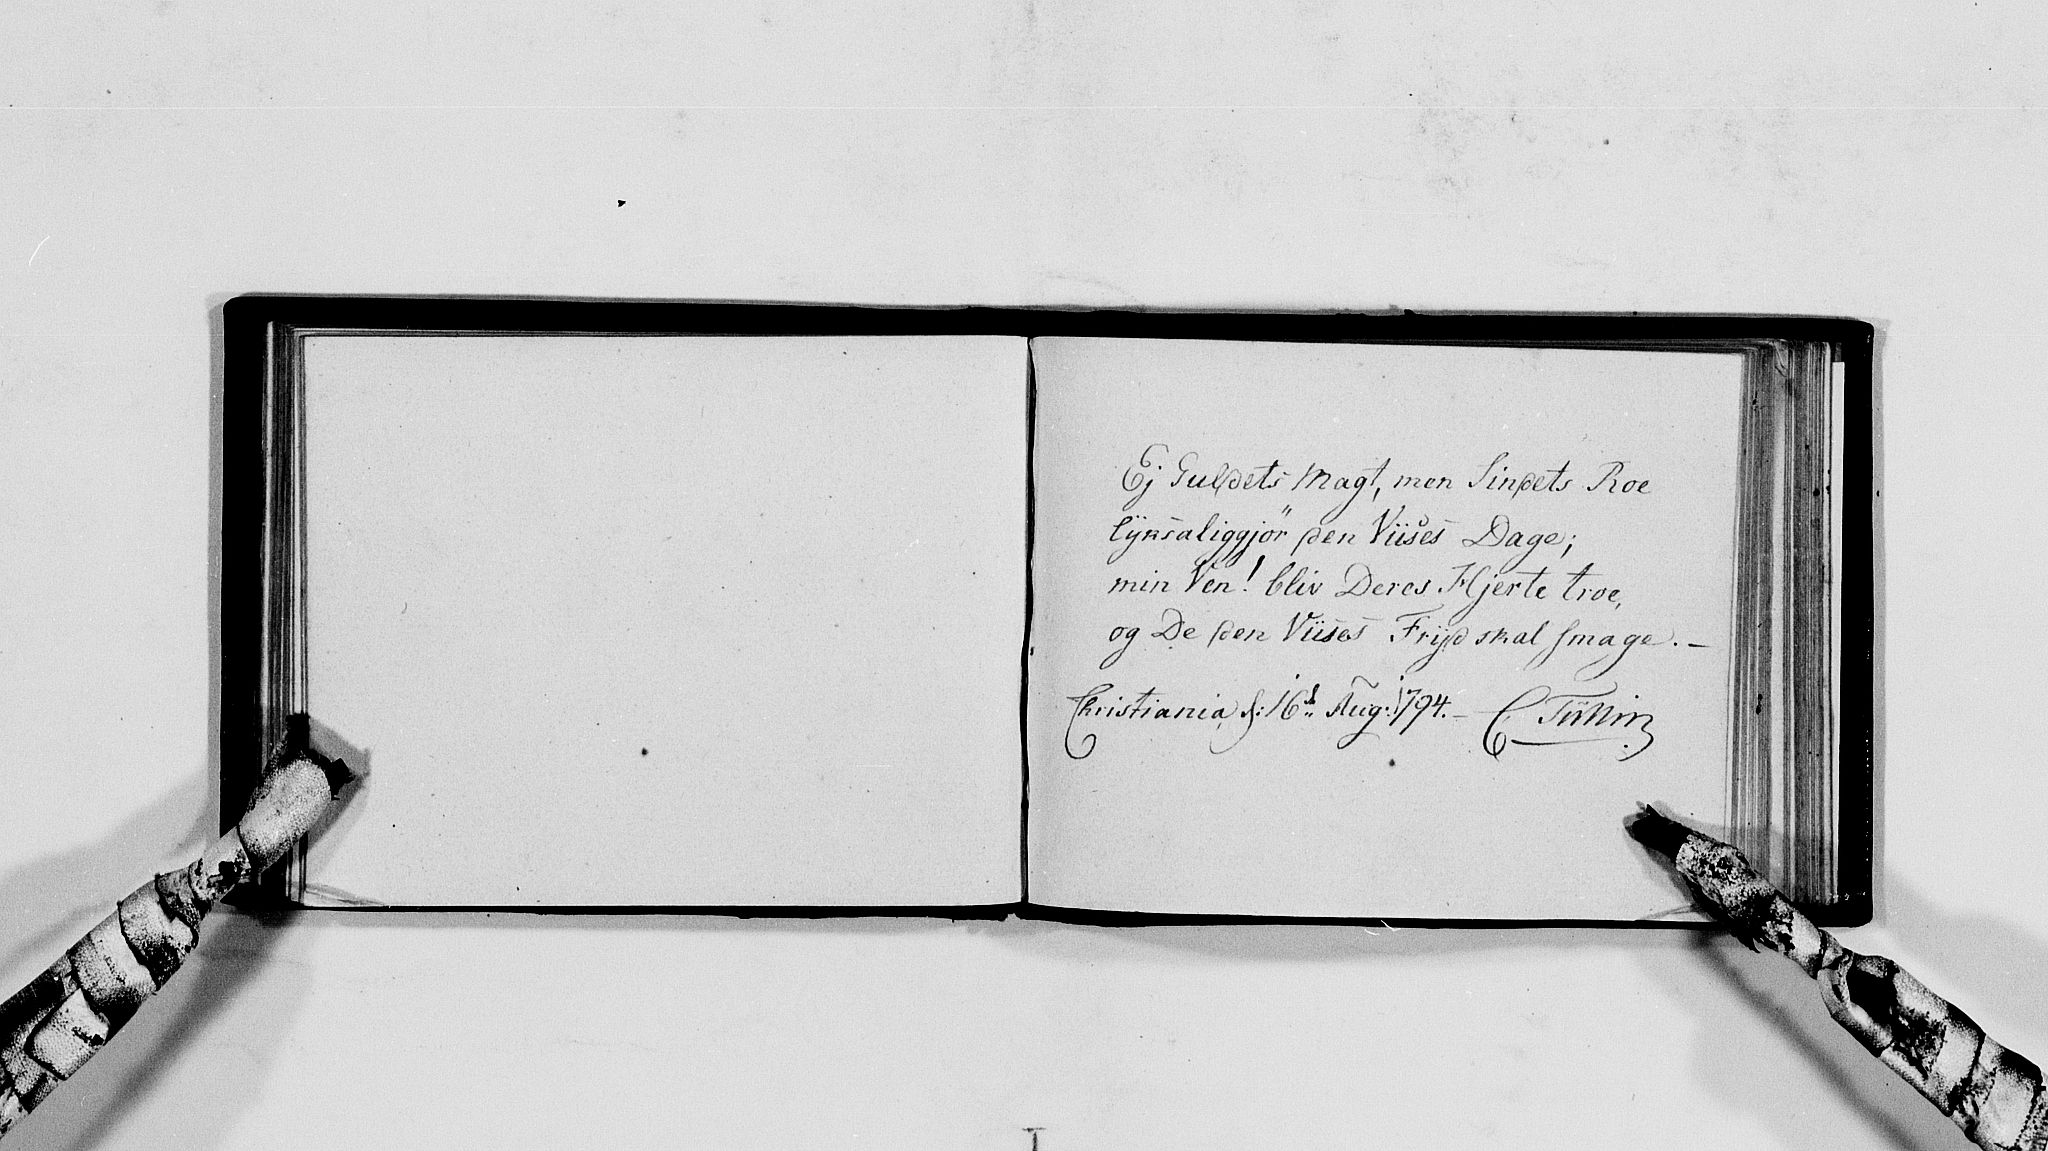 Ej Guldets Magt, men Sindets Roe
lÿksaliggjör den Viises Dage;
min Ven! bliv Deres Hjerte troe,
og De den Viises Frÿd skal smage. –
Christiania, d: 16d Aug: 1794. – C Tüllin